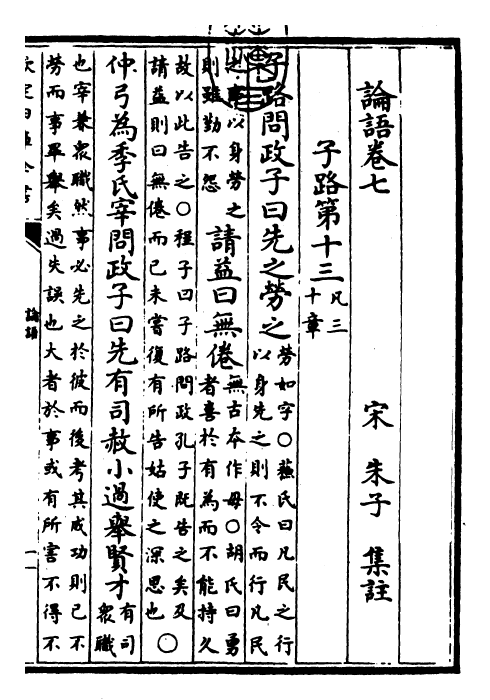 論語卷七 宋 朱子 集註
子路第十三 凡三
十章
子路問政子曰先之勞之 勞如字○蘇氏曰凡民之行
以身先之則不令而行凡民
之事以身勞之
則雖勤不怨 請益曰無倦 無古本作毋○胡氏曰勇
者喜於有為而不能持久
故以此告之○程子曰子路問政孔子既告之矣及
請益則曰無倦而已未嘗復有所告姑使之深思也○
仲弓為季氏宰問政子曰先有司赦小過舉賢才 有司
衆職
也宰兼衆職然事必先之於彼而後考其成功則已不
勞而事畢舉矣過失誤也大者於事或有所害不得不
論語